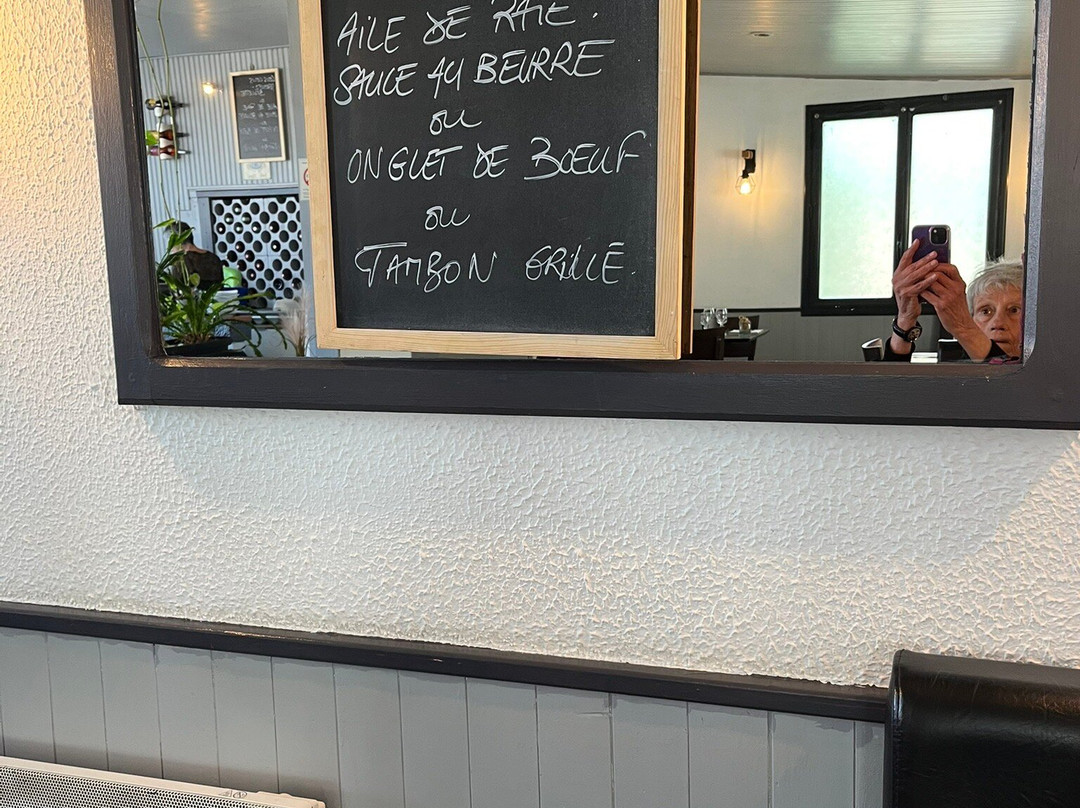 AILE DE RAIE.
SAUCE AU BEURRE
ou
ONGLET DE BŒUF
ou
JAMBON GRILLE.